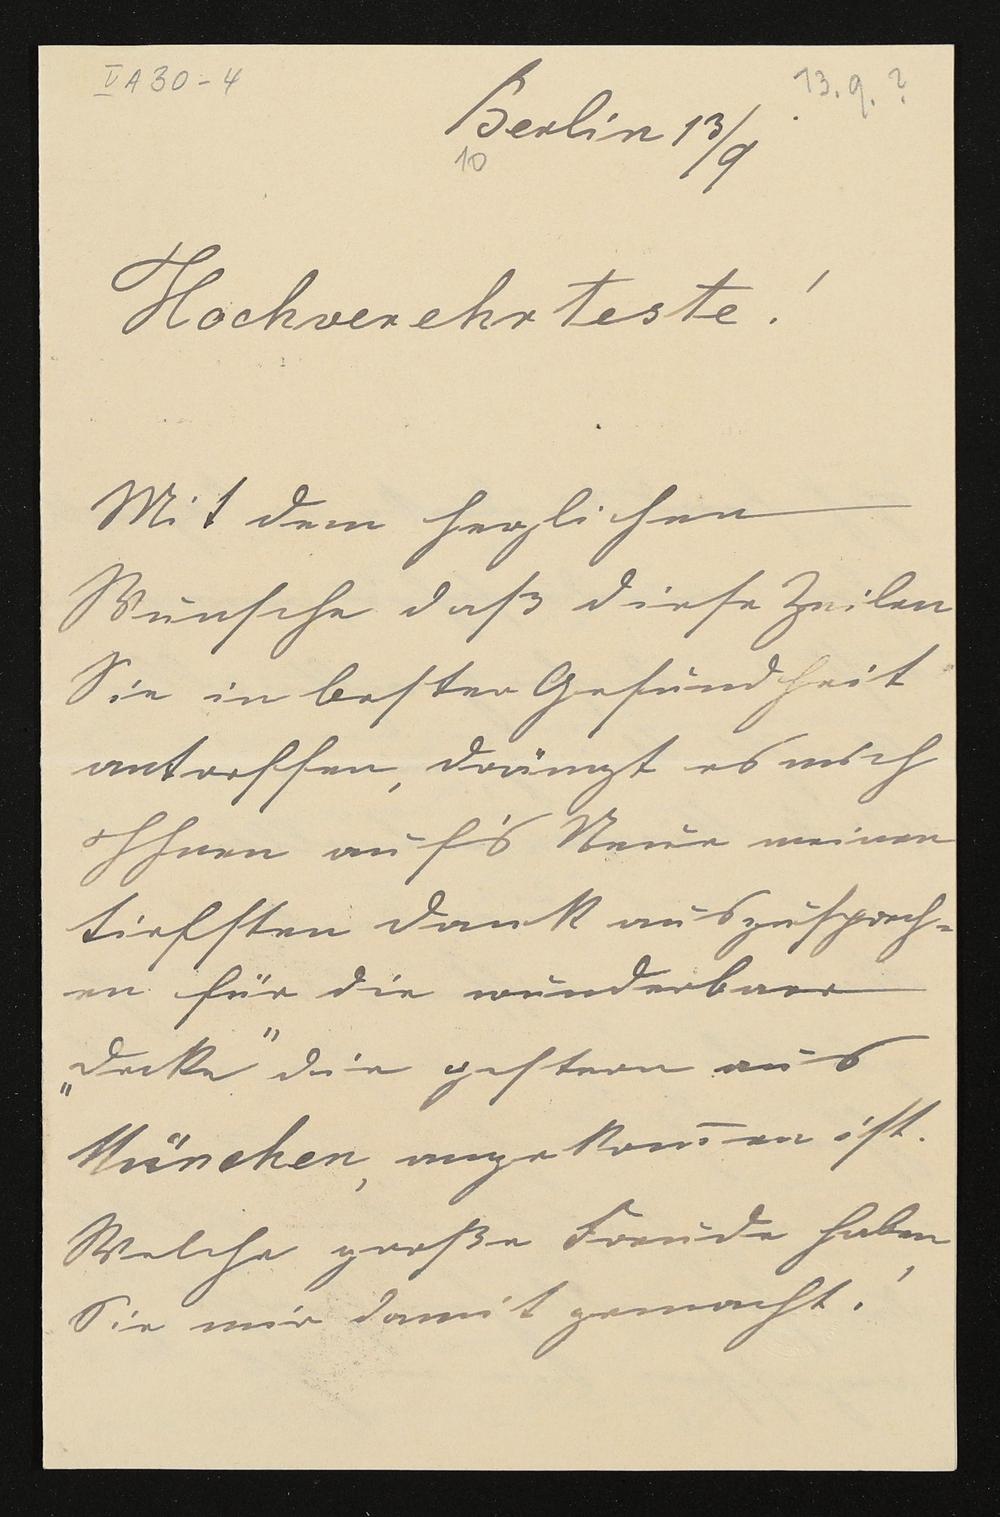 V A 30-4
13. 9. ?
Berlin 13/9
10
Hochverehrteste!
Mit dem herzlichen
Wunsche daß diese Zeilen
Sie in bester Gesundheit
antreffen, drängt es mich
Ihnen auf's Neue meinen
tiefsten Dank auszusprech-
en für die wunderbare
„Decke" die gestern aus
München, angekom̅en ist.
Welche große Freude haben
Sie mir damit gemacht!